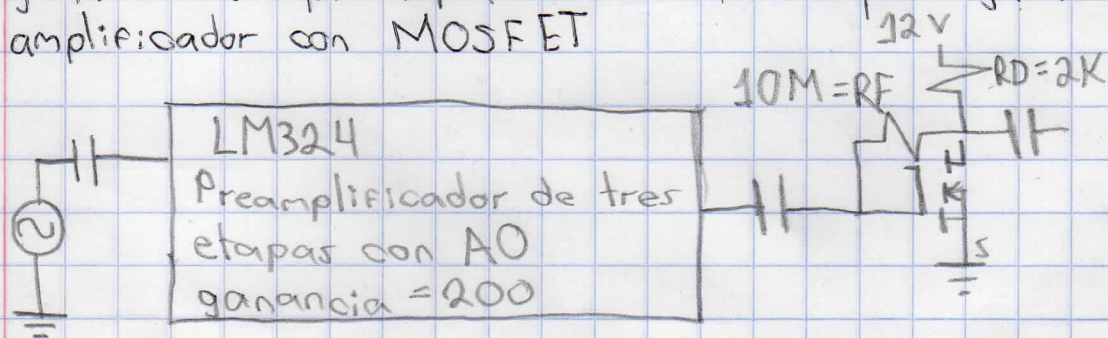 amplificador con MOSFET
12 V
10M = RF
RD = 2K
LM324
Preamplificador de tres
etapas con AO
ganancia = 200
S